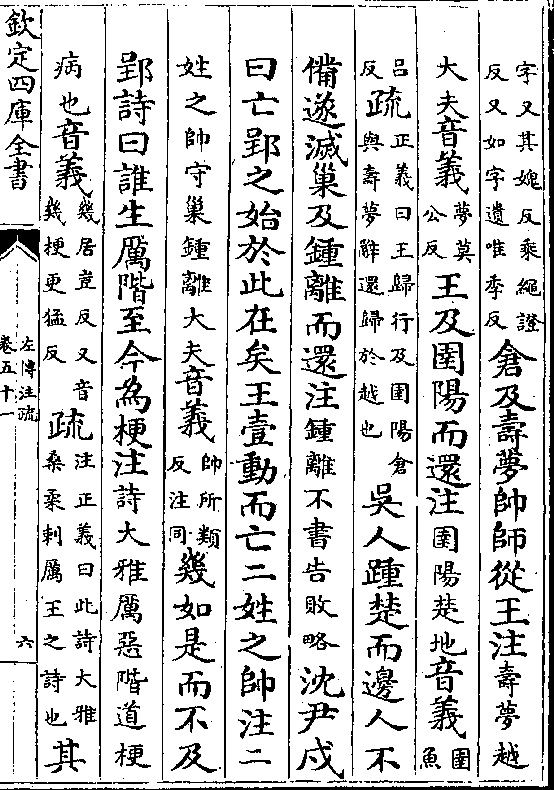 字又其媿反乘繩證
反又如字遺唯季反
倉及壽夢帥師從王注壽夢越
大夫音義夢莫
公反王及圉陽而還注圉陽楚地音義圉
魚
呂
反疏正義曰王歸行及圉陽倉
與壽夢辭還歸於越也吳人踵楚而邊人不
備遂滅巢及鍾離而還注鍾離不書告敗略沈尹戌
曰亡郢之始於此在矣王壹動而亡二姓之帥注二
姓之帥守巢鍾離大夫音義帥所類
反注同幾如是而不及
郢詩曰誰生厲階至今為梗注詩大雅厲惡階道梗
病也音義幾居豈反又音
幾梗更猛反疏注正義曰此詩大雅
桑柔刺厲王之詩也其
欽定四庫全書
左傳注疏
卷五十一
六